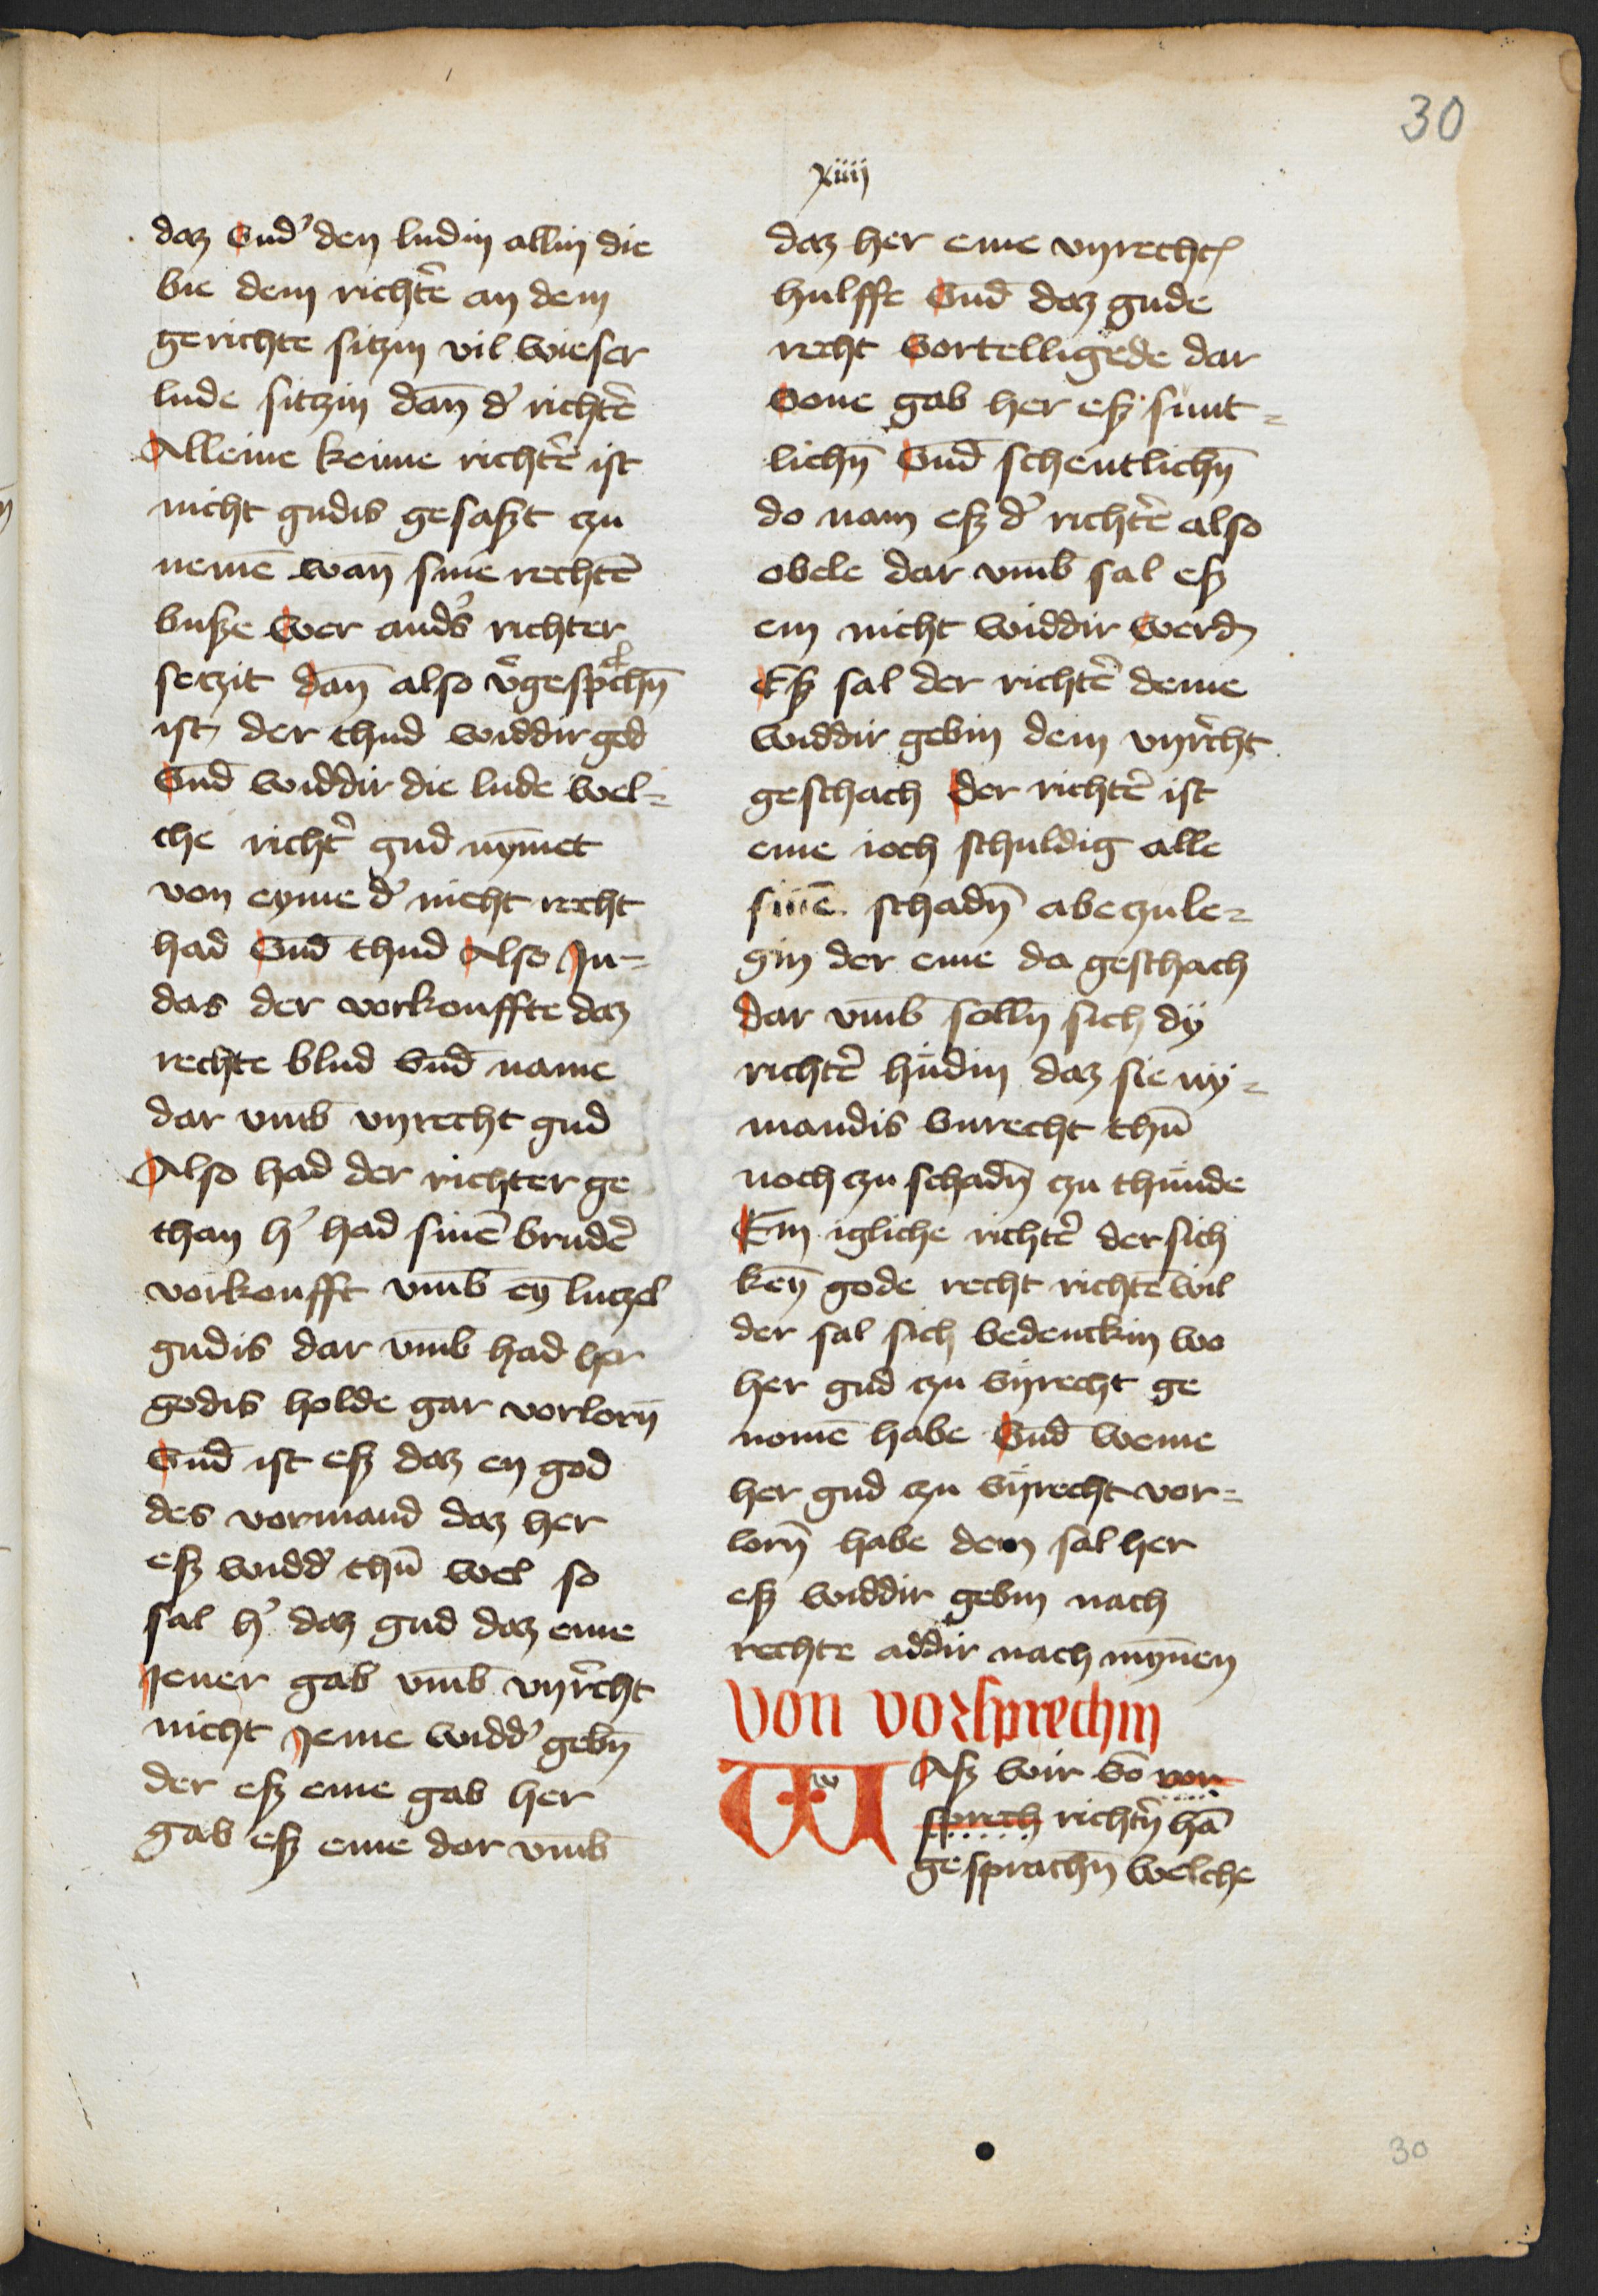 30
xiiij
daz vnd' den ludin allin die
bie dem richtẽ an dem
gerichte sitzin vil wieser
lude sitzin dañ d' richtẽ
Alleine keine richtẽ ist
nicht gudis gesaszt czu
nemẽ wañ sinẽ rechtẽ
busze wer and's richter
setzit dañ also
ist der thud widdir god
Vnd̄ widdir die lude wel-
che richt' gud nȳmet
von eyme d' nicht recht
had vnd̄ thud Also Ju-
das der vorkouffte daz
rechte blud vnd̄ name
dar vm̄b vnrecht gud
Also had der richter ge
than h' had sinẽ brudẽ
vorkoufft vm̄b eȳ luczel
gudis dar vm̄b had her
godis holde gar vorlorñ
Vnd̄ ist esz daz en god
des vormand daz her
esz widd' thũ wel so
sal h' daz gud daz eme
Jener gab vm̄b vnrecht
nicht Jeme widd' gebñ
der esz eme gab her
gab esz eme dar vm̄b
daz her eme vnrecht
hulffe Vnd̄ daz gude
recht vortelligede dar
vone gab her esz sunt-
lichñ Vnd̄ schentlichñ
do nam esz d' richtẽ also
obele dar vm̄b sal esz
em nicht widdir werd
Esz sal der richtẽ deme
widdir gebin dem vnrecht
geschach der richtẽ ist
eme ioch schuldig alle
sinẽ schadñ abeczule-
gin der eme da geschach
dar vm̄b sollñ sich dÿ
richtẽ hudin daz sie nÿ-
mandis vnrecht thũ
noch czu schadñ czu thunde
Ein igliche richtẽ der sich
keñ gode recht richtẽ wil
der sal sich bedenckin wo
her gud czu vnrecht ge
nomẽ habe Vnd̄ weme
her gud czu vnrecht vor-
lorñ habe dem sal her
esz widdir gebin nach
rechte addir nach mȳnen
von vorsprechin
W Asz wir võ vor
sprech richtñ hã
gesprachñ welche
30